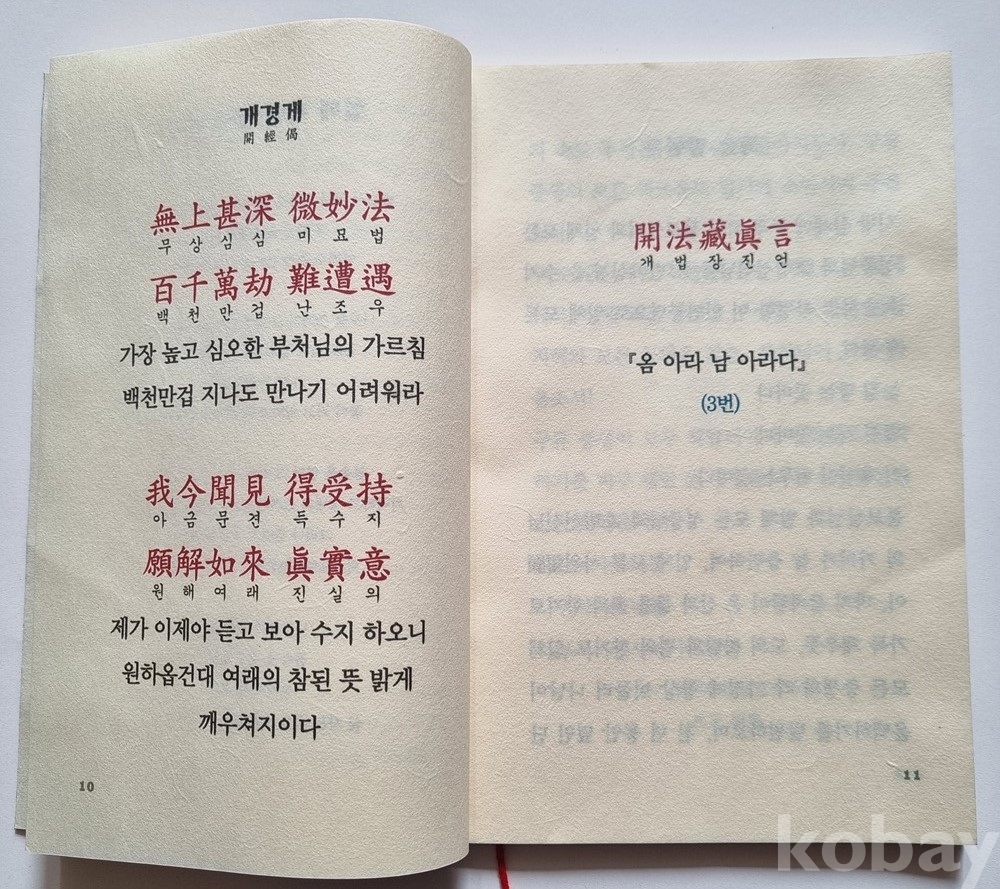 개경게
開經偈
無上甚深 微妙法
무상심심 미묘법
百千萬劫 難遭遇
백천만겁 난조우
가장 높고 심오한 부처님의 가르침
백천만겁 지나도 만나기 어려워라
我今聞見 得受持
아금문견 득수지
願解如來 眞實意
원해여래 진실의
제가 이제야 듣고 보아 수지 하오니
원하옵건대 여래의 참된 뜻 밝게
깨우쳐지이다
10
開法藏眞言
개법장진언
『옴 아라 남 아라다』
(3번)
11
kobay